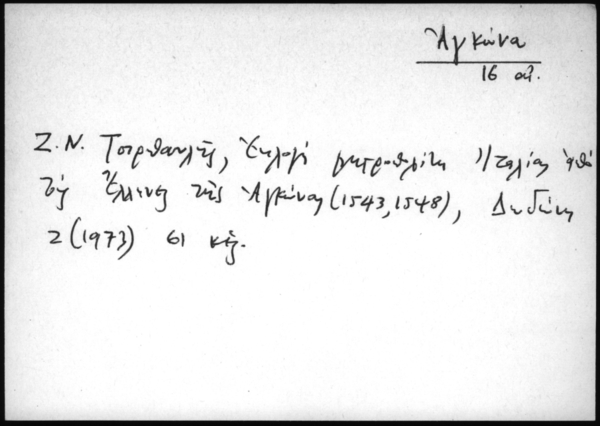 Ἀγκώνα
16 αἰ.
Ζ.Ν. Τσιρπανλῆς, Ἐκλογή μητροπολίτη Ἰταλίας ἀπό
τούς Ἕλληνες τῆς Ἀγκώνας (1543, 1548), Δωδώνη
2 (1973) 61 κἑξ.